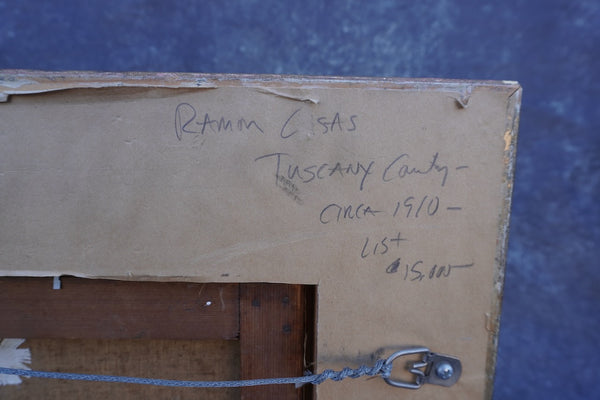 RAMON CASAS
TUSCANY County -
CIRCA 1910 -
LIST
$15,000